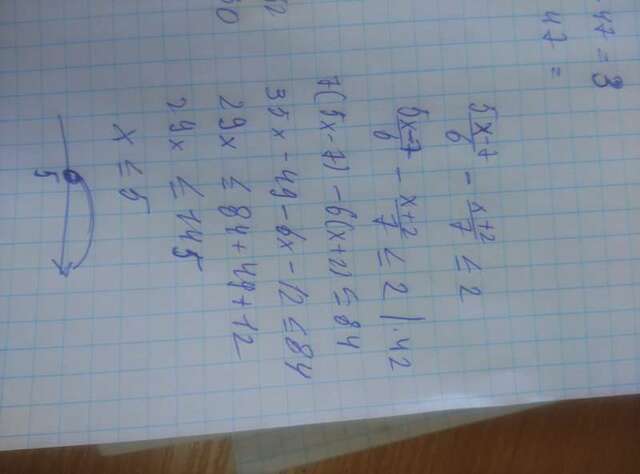 47 = 3
47 =
(5x-7)/6 - (x+2)/7 ≤ 2
(5x-7)/6 - (x+2)/7 ≤ 2 |·42
7(5x-7)-6(x+2) ≤ 84
35x-49-6x-12 ≤ 84
29x ≤ 84+49+12
29x ≤ 145
x ≤ 5
5